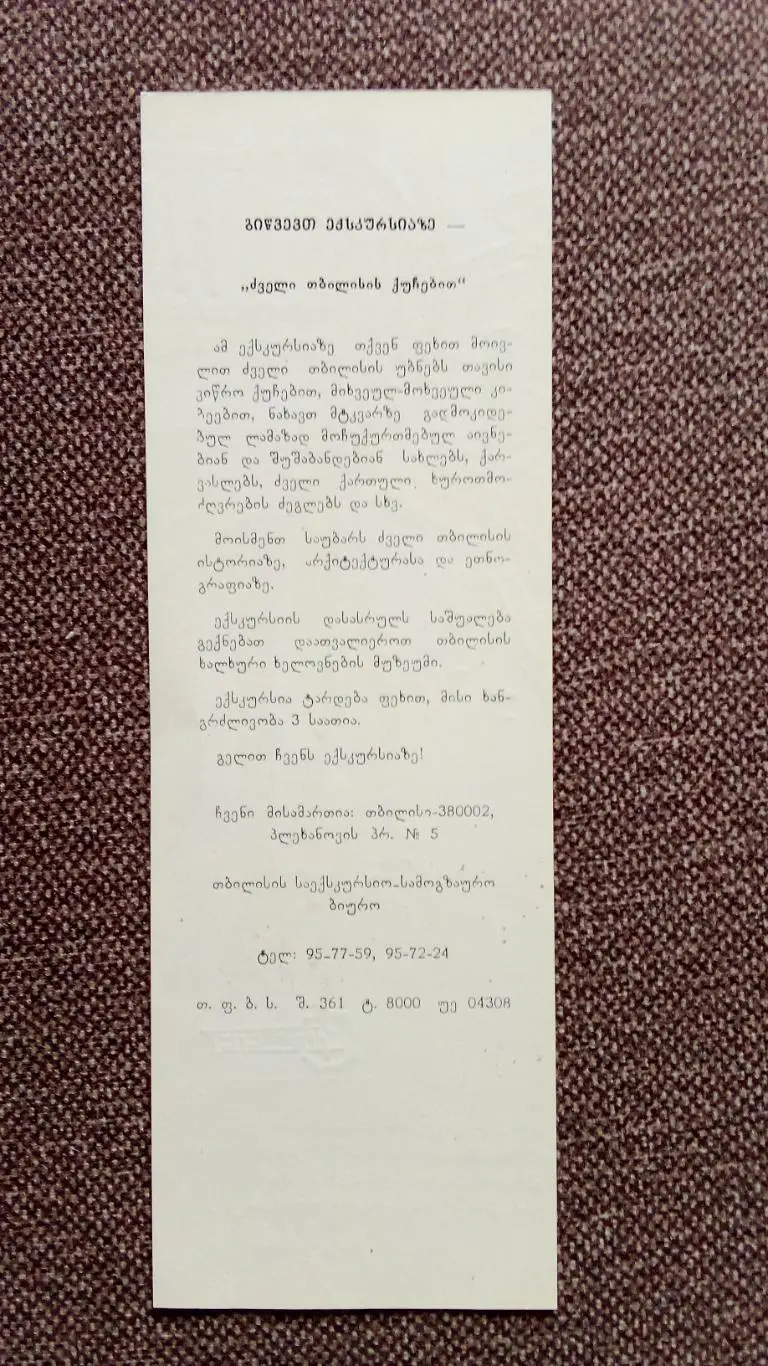 გიწვევთ ექსკურსიაზე —
„ძველი თბილისის ქუჩებით“
ამ ექსკურსიაზე თქვენ ფეხით მოივ-
ლით ძველი თბილისის უბნებს თავისი
ვიწრო ქუჩებით, მიხვეულ-მოხვეული კი-
ბეებით, ნახავთ მტკვარზე გადმოკიდე-
ბულ ლამაზად მოჩუქურთმებულ აივნე-
ბიან და შუშაბანდებიან სახლებს, ქარ-
ვასლებს, ძველი ქართული ხუროთმო-
ძღვრების ძეგლებს და სხვ.
მოისმენთ საუბარს ძველი თბილისის
ისტორიაზე, არქიტექტურასა და ეთნო-
გრაფიაზე.
ექსკურსიის დასასრულს საშუალება
გექნებათ დაათვალიეროთ თბილისის
ხალხური ხელოვნების მუზეუმი.
ექსკურსია ტარდება ფეხით, მისი ხან-
გრძლივობა 3 საათია.
გელით ჩვენს ექსკურსიაზე!
ჩვენი მისამართია: თბილისი-380002,
პლეხანოვის პრ. № 5
თბილისის საექსკურსიო-სამოგზაურო
ბიურო
ტელ: 95-77-59, 95-72-24
თ. ფ. ბ. ს. შ. 361 ტ. 8000 უე 04308